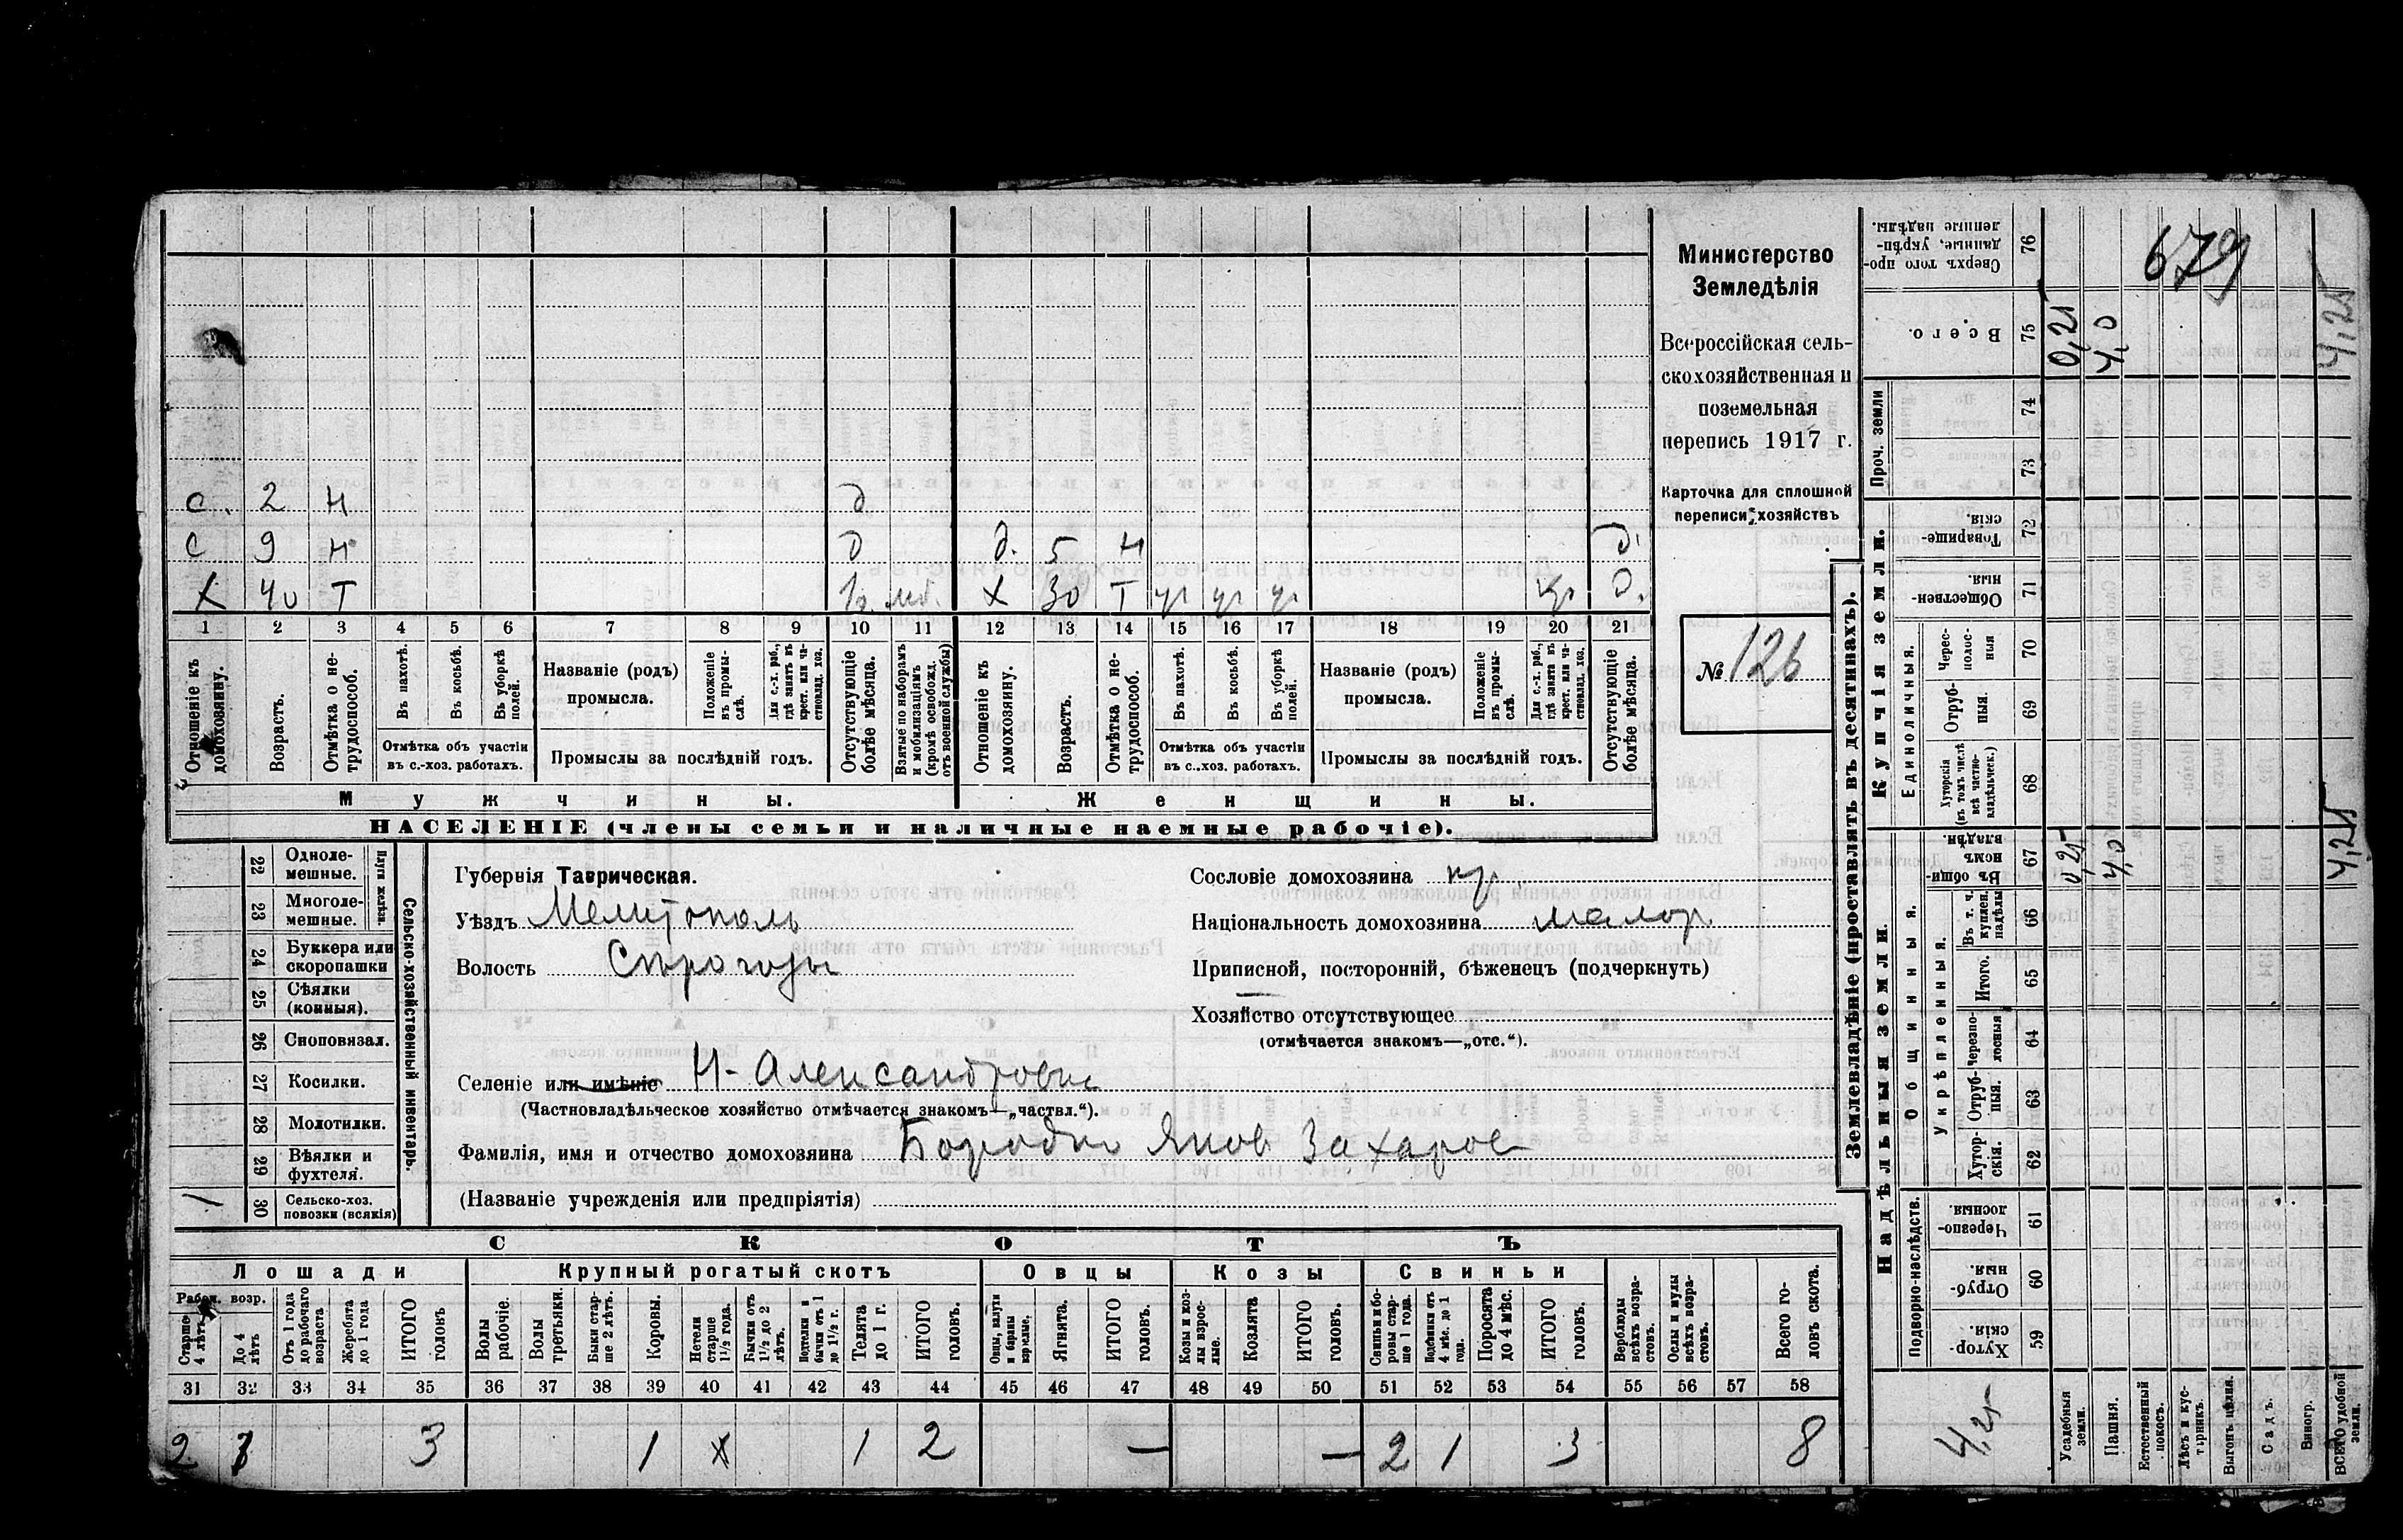 с. 2 н д
с 9 н д д. 5 н д.
х 40 т 1/2 моб. х 30 т уг уг уг кр д.
1 2 3 4 5 6 7 8 9 10 11 12 13 14 15 16 17 18 19 20 21
Отношеніе къ домохозяину.
Возрастъ.
Отмѣтка о нетрудоспособ.
Въ пахотѣ.
Въ косьбѣ.
Въ уборкѣ полей.
Отмѣтка объ участіи
въ с.-хоз. работахъ.
Названіе (родъ)
промысла.
Положеніе въ промыслѣ.
Для с.-х. раб., гдѣ занятъ въ крест. или частновлад. хоз.
Промыслы за послѣдній годъ.
Отсутствующіе болѣе мѣсяца.
Взятые по наборамъ и мобилизаціямъ (кромѣ освобожд. отъ военной службы)
Отношеніе къ домохозяину.
Возрастъ.
Отмѣтка о нетрудоспособ.
Въ пахотѣ.
Въ косьбѣ.
Въ уборкѣ полей.
Отмѣтка объ участіи
въ с.-хоз. работахъ.
Названіе (родъ)
промысла.
Положеніе въ промыслѣ.
Для с.-х. раб., гдѣ занятъ въ крест. или частновлад. хоз.
Промыслы за послѣдній годъ.
Отсутствующіе болѣе мѣсяца.
Мужчины. Женщины.
НАСЕЛЕНІЕ (члены семьи и наличные наемные рабочіе).
Министерство
Земледѣлія
Всероссійская сель-
скохозяйственная и
поземельная
перепись 1917 г.
Карточка для сплошной
переписи хозяйствъ
№ 126
22 Одноле-
мешные.
23 Многоле-
мешные.
Плуги желѣзн.
24 Буккера или
скоропашки
25 Сѣялки
(конныя).
26 Сноповязал.
27 Косилки.
28 Молотилки.
29 Вѣялки и
фухтеля.
1 30 Сельско-хоз.
повозки (всякія)
Сельско-хозяйственный инвентарь.
Губернія Таврическая.
Уѣздъ Мелитополь
Волость Сѣрогозы
Сословіе домохозяина кр.
Національность домохозяина малор
Приписной, посторонній, бѣженецъ (подчеркнуть)
Хозяйство отсутствующее
(отмѣчается знакомъ—„отс.“).
Селеніе или имѣніе Н-Александровка
(Частновладѣльческое хозяйство отмѣчается знакомъ—„частвл.“).
Фамилія, имя и отчество домохозяина Бородко Яков Захаров
(Названіе учрежденія или предпріятія)
СКОТЪ
Лошади Крупный рогатый скотъ Овцы Козы Свиньи
Рабоч. возр.
Старше 4 лѣтъ
До 4 лѣтъ
Отъ 1 года до рабочаго возраста
Жеребята до 1 года
ИТОГО головъ
Волы рабочіе.
Волы третьяки.
Быки старше 2 лѣтъ.
Коровы.
Нетели старше 1½ года.
Бычки отъ 1½ до 2 лѣтъ.
Подтелки и бычки отъ 1 до 1½ г.
Телята до 1 г.
ИТОГО головъ.
Овцы, валухи и бараны взрослые.
Ягнята.
ИТОГО головъ.
Козы и козлы взрослые.
Козлята
ИТОГО головъ.
Свиньи и боровы старше 1 года.
Подсвинки отъ 4 мѣс. до 1 года.
Поросята до 4 мѣс.
ИТОГО головъ.
Верблюды всѣхъ возрастовъ.
Ослы и мулы всѣхъ возрастовъ.
Всего головъ скота.
31 32 33 34 35 36 37 38 39 40 41 42 43 44 45 46 47 48 49 50 51 52 53 54 55 56 57 58
2 1 3 1 1 2 — — 2 1 3 8
Землевладѣніе (проставлять въ десятинахъ).
Сверхъ того проданные, укрѣпленные надѣлы. 76
Всего. 75 0,25 4,0 4,25
679
Проч. земли 74 73
Купчія земли.
Товарищескія. 72
Общественныя. 71
Единоличныя.
Чересполосныя 70
Отрубныя 69
Хуторскія (въ томъ числѣ всѣ частновладѣльческ.) 68
Надѣльныя земли.
Общинныя.
Въ общинномъ владѣн. 67 0,25 4,0 4,25
Въ т. ч. куплен. надѣлы 66
Укрѣпленныя.
Итого. 65
Черезполосныя 64
Отрубныя. 63
Хуторскія. 62
Подворно-наслѣдств.
Черезполосныя. 61
Отрубныя. 60
Хуторскія. 59
4,25
Усадебныя земли.
Пашня.
Естественный покосъ.
Лѣсъ и кустарникъ.
Выгонъ цѣлина.
Садъ.
Виногр.
ВСЕГО удобной земли.